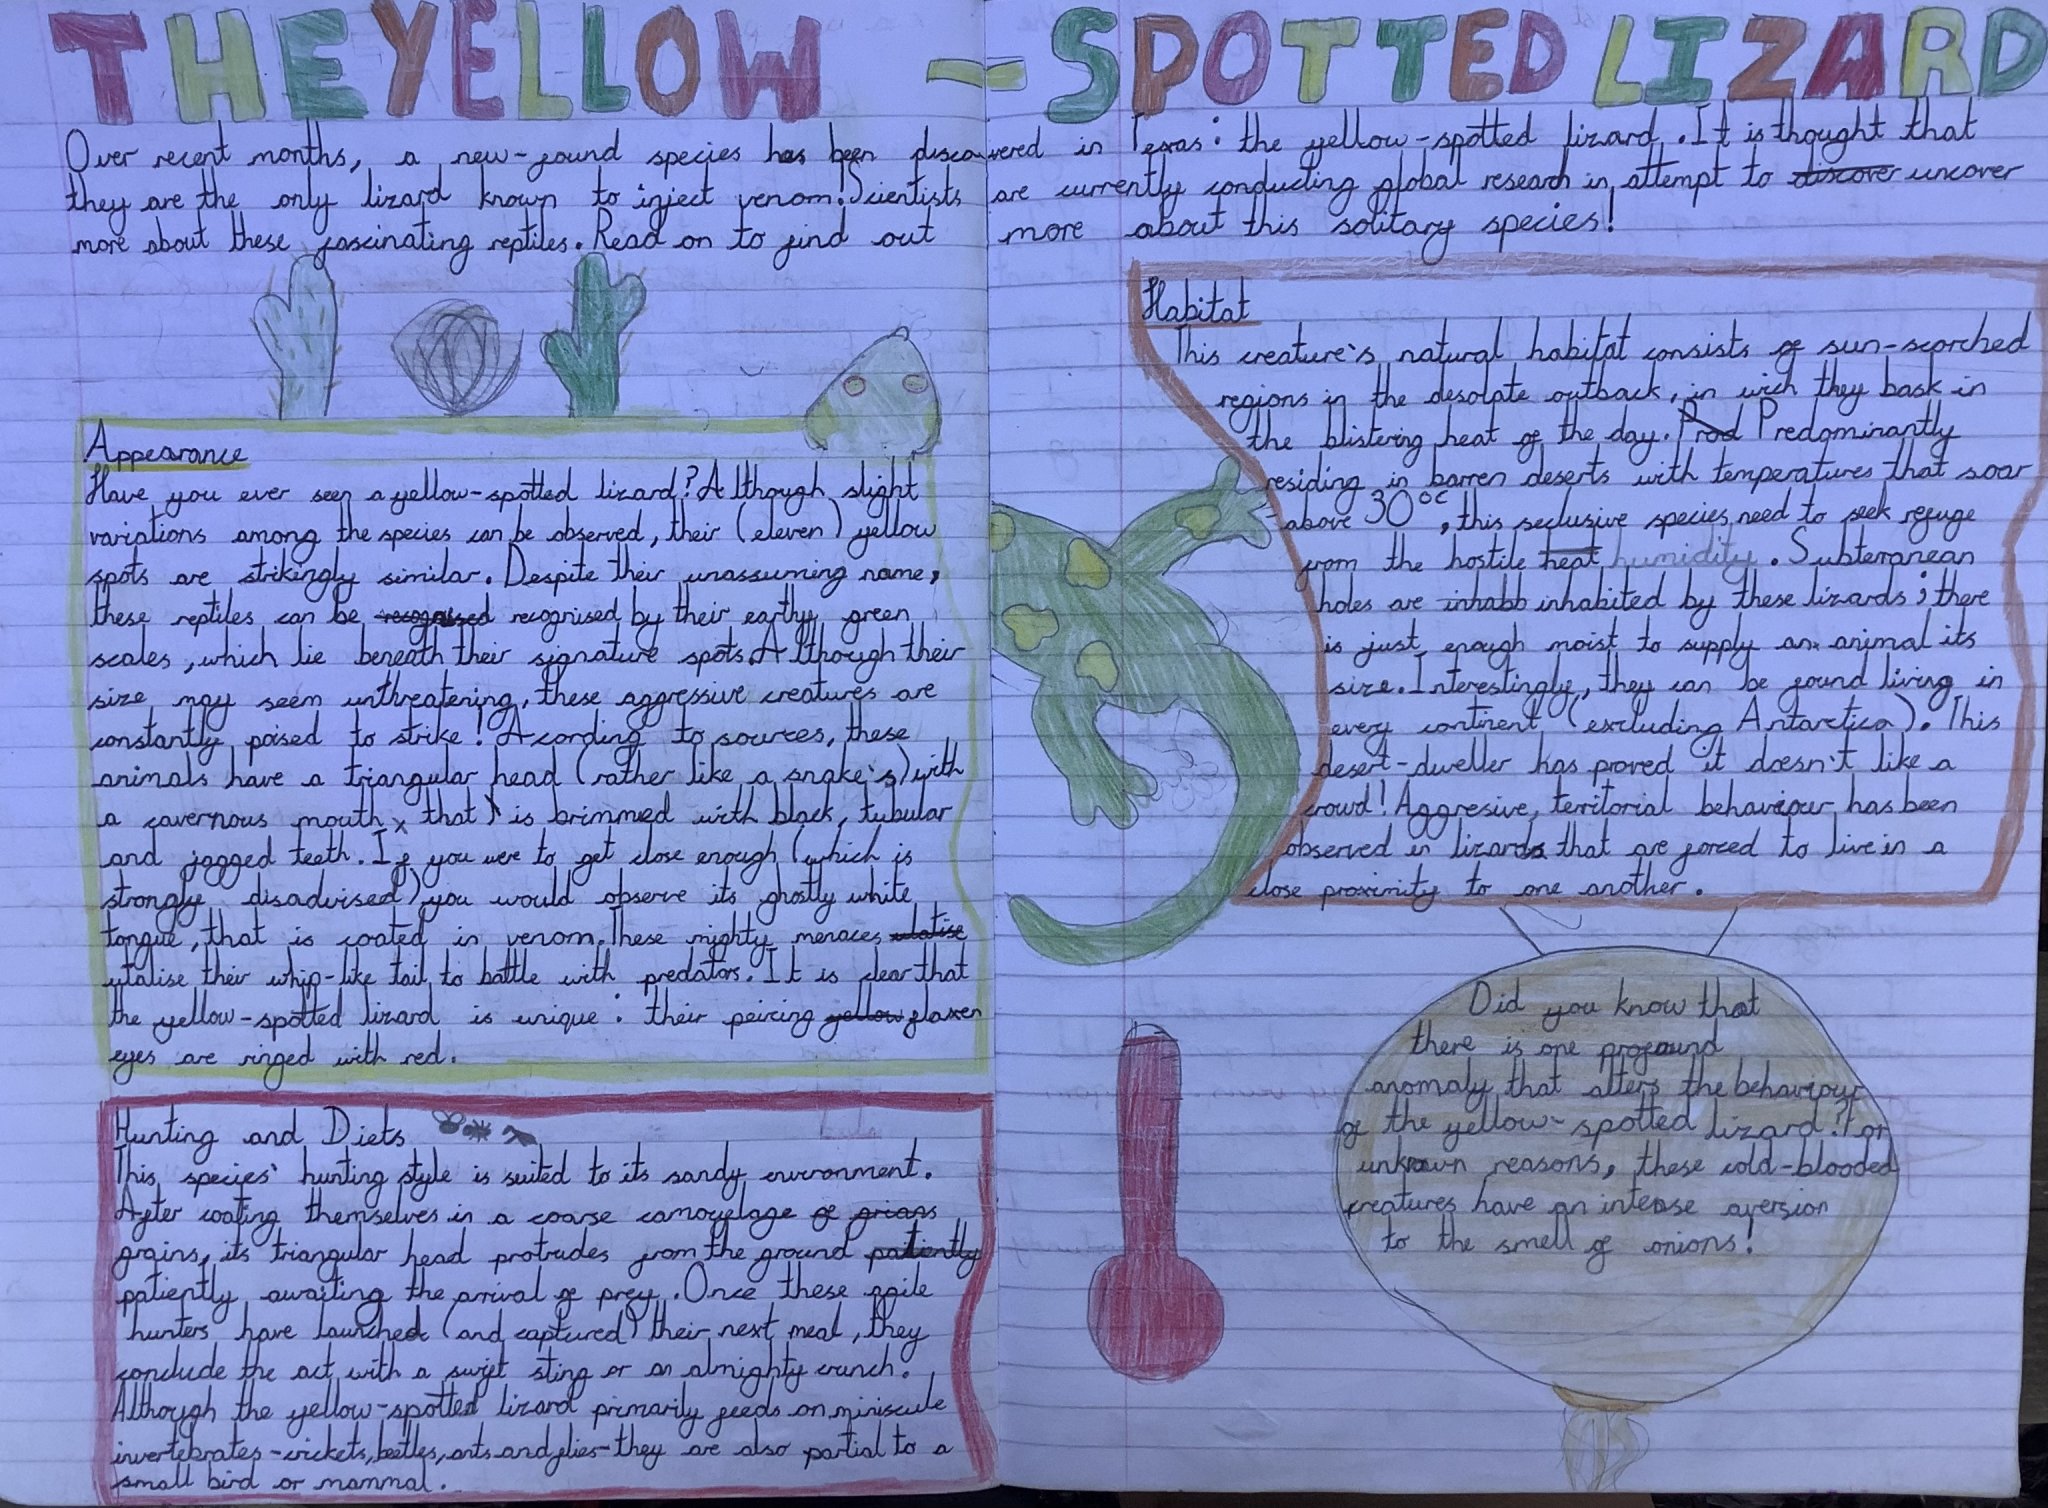 THE YELLOW - SPOTTED LIZARD
Over recent months, a new-found species has been discovered in Texas: the yellow-spotted lizard. It is thought that
they are the only lizard known to inject venom! Scientists are currently conducting global research in attempt to discover uncover
more about these fascinating reptiles. Read on to find out more about this solitary species!
Appearance
Have you ever seen a yellow-spotted lizard? Although slight
variations among the species can be observed, their (eleven) yellow
spots are strikingly similar. Despite their unassuming name,
these reptiles can be recognised recognised by their earthy green
scales, which lie beneath their signature spots. Although their
size may seem unthreatening, these aggressive creatures are
constantly poised to strike! Acording to sources, these
animals have a triangular head (rather like a snake's) with
a cavernous mouth that is brimmed with black, tubular
and jagged teeth. If you were to get close enough (which is
strongly disadvised) you would observe its ghostly white
tongue, that is coated in venom. These mighty menaces utatise
utalise their whip-like tail to battle with predators. It is clear that
the yellow-spotted lizard is unique: their peircing yellow flaxen
eyes are ringed with red.
Hunting and Diets
This species' hunting style is suited to its sandy environment.
After coating themselves in a coarse camouflage of grians
grains, its triangular head protrudes from the ground patiently
patiently awaiting the arrival of prey. Once these agile
hunters have launched (and captured) their next meal, they
conclude the act with a swift sting or an almighty crunch.
Although the yellow-spotted lizard primarily feeds on miniscule
invertebrates-crickets, beetles, ants and flies-they are also partial to a
small bird or mammal.
Habitat
This creature's natural habitat consists of sun-scorched
regions in the desolate outback, in wich they bask in
the blistering heat of the day. Prod Predominantly
residing in barren deserts with temperatures that soar
above 30°c, this seclusive species need to seek refuge
from the hostile heat humidity. Subterranean
holes are inhabb inhabited by these lizards; there
is just enough moist to supply an animal its
size. Interestingly, they can be found living in
every continent (excluding Antarctica). This
desert-dweller has proved it doesn't like a
crowd! Aggresive, territorial behaviour has been
observed in lizards that are forced to live in a
close proximity to one another.
Did you know that
there is one profound
anomaly that alters the behaviour
of the yellow-spotted lizard? For
unknown reasons, these cold-blooded
creatures have an intense aversion
to the smell of onions!